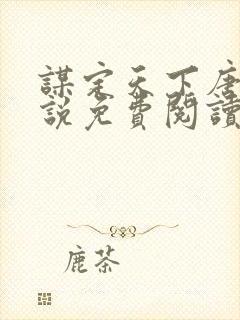 謀定天下唐
說免費閱讀
鹿茶